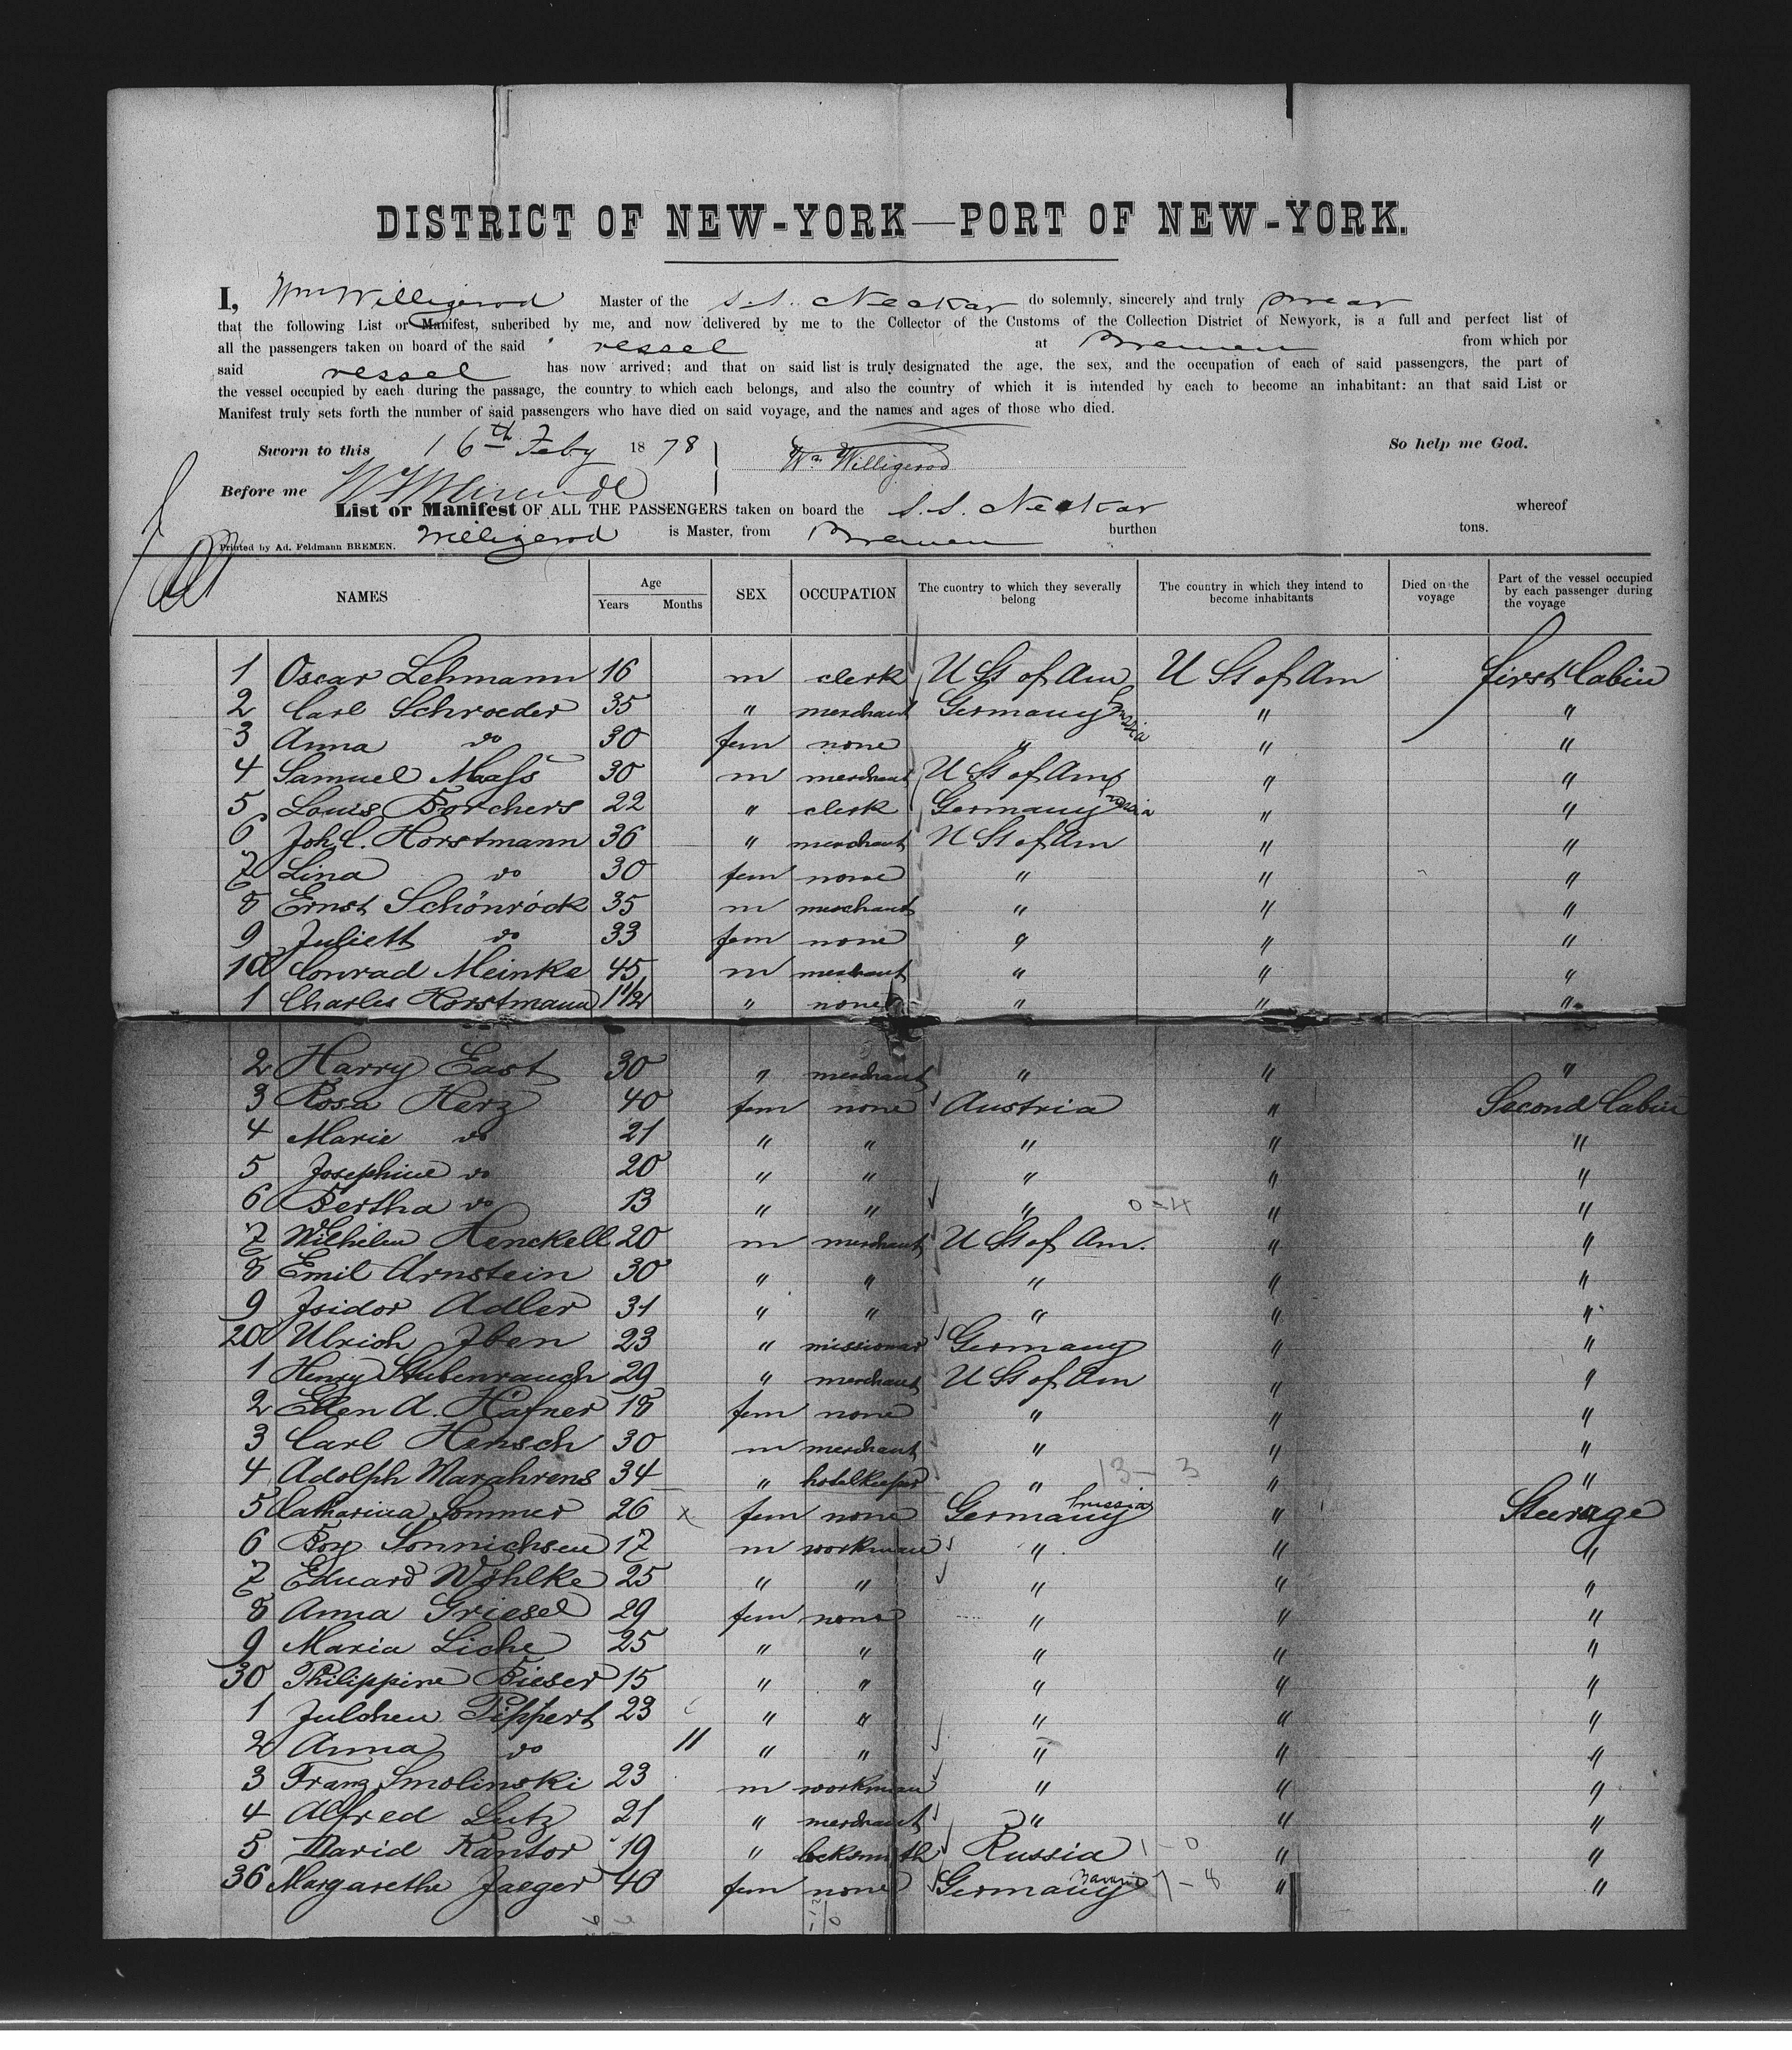 DISTRICT OF NEW-YORK—PORT OF NEW-YORK.
I, Wm Willigerod Master of the S.S. Neckar do solemnly, sincerely and truly swear
that the following List or Manifest, subcribed by me, and now delivered by me to the Collector of the Customs of the Collection District of Newyork, is a full and perfect list of
all the passengers taken on board of the said vessel at Bremen from which por
said vessel has now arrived; and that on said list is truly designated the age, the sex, and the occupation of each of said passengers, the part of
the vessel occupied by each during the passage, the country to which each belongs, and also the country of which it is intended by each to become an inhabitant: an that said List or
Manifest truly sets forth the number of said passengers who have died on said voyage, and the names and ages of those who died.
Sworn to this 16th Feby 1878 Wm Willigerod So help me God.
Before me
List or Manifest OF ALL THE PASSENGERS taken on board the S.S. Neckar whereof
Willigerod is Master, from Bremen burthen tons.
Printed by Ad. Feldmann BREMEN.
NAMES Age Years Months SEX OCCUPATION The cuontry to which they severally belong The country in which they intend to become inhabitants Died on the voyage Part of the vessel occupied by each passenger during the voyage
1 Oscar Lehmann 16 m clerk U St of Am U St of Am first Cabin
2 Carl Schroeder 35 " merchant Germany Prussia " "
3 Anna do 30 fem none " " "
4 Samuel Maass 30 m merchant U St of Am " "
5 Louis Borchers 22 " clerk Germany Prussia " "
6 Joh. C. Horstmann 36 " merchant U St of Am " "
7 Lina do 30 fem none " " "
8 Ernst Schönrock 35 m merchant " " "
9 Juliett do 33 fem none " " "
10 Conrad Meinke 45 m merchant " " "
1 Charles Horstmann 1 1/2 " none " " "
2 Harry East 30 " merchant " " "
3 Rosa Herz 40 fem none Austria " Second Cabin
4 Marie do 21 " " " " "
5 Josephine do 20 " " " " "
6 Bertha do 13 " " " 0-4 " "
7 Wilhelm Henckell 20 m merchant U St of Am. " "
8 Emil Arnstein 30 " " " " "
9 Isidor Adler 31 " " " " "
20 Ulrich Iben 23 " missionar Germany " "
1 Henry Stubenrauch 29 " merchant U St of Am " "
2 Ellen A. Hafner 18 fem none " " "
3 Carl Hensch 30 m merchant " " "
4 Adolph Marahrens 34 " hotelkeeper " 13-3 " "
5 Catharina Sommer 26 x fem none Germany Prussia " Steerage
6 Boy Sonnichsen 17 m workman " " "
7 Eduard Wohlke 25 " " " " "
8 Anna Griesel 29 fem none " " "
9 Maria Liche 25 " " " " "
30 Philippine Bieser 15 " " " " "
1 Julchen Pippert 23 " " " " "
2 Anna do 11 " " " " "
3 Franz Smolinski 23 m workman " " "
4 Alfred Lutz 21 " merchant " " "
5 David Kantor 19 " locksmith Russia 1-0 " "
36 Margarethe Jaeger 40 fem none Germany 7-8 " "